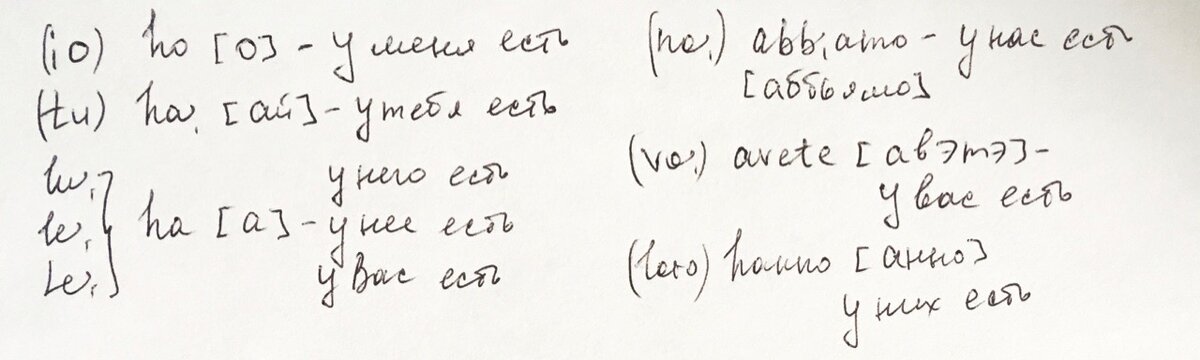 (io) ho [о] - у меня есть
(tu) hai [ай] - у тебя есть
lui у него есть
lei ha [а] - у нее есть
Lei у Вас есть
(noi) abbiamo - у нас есть
[аббьямо]
(voi) avete [авэтэ] -
у вас есть
(loro) hanno [анно]
у них есть